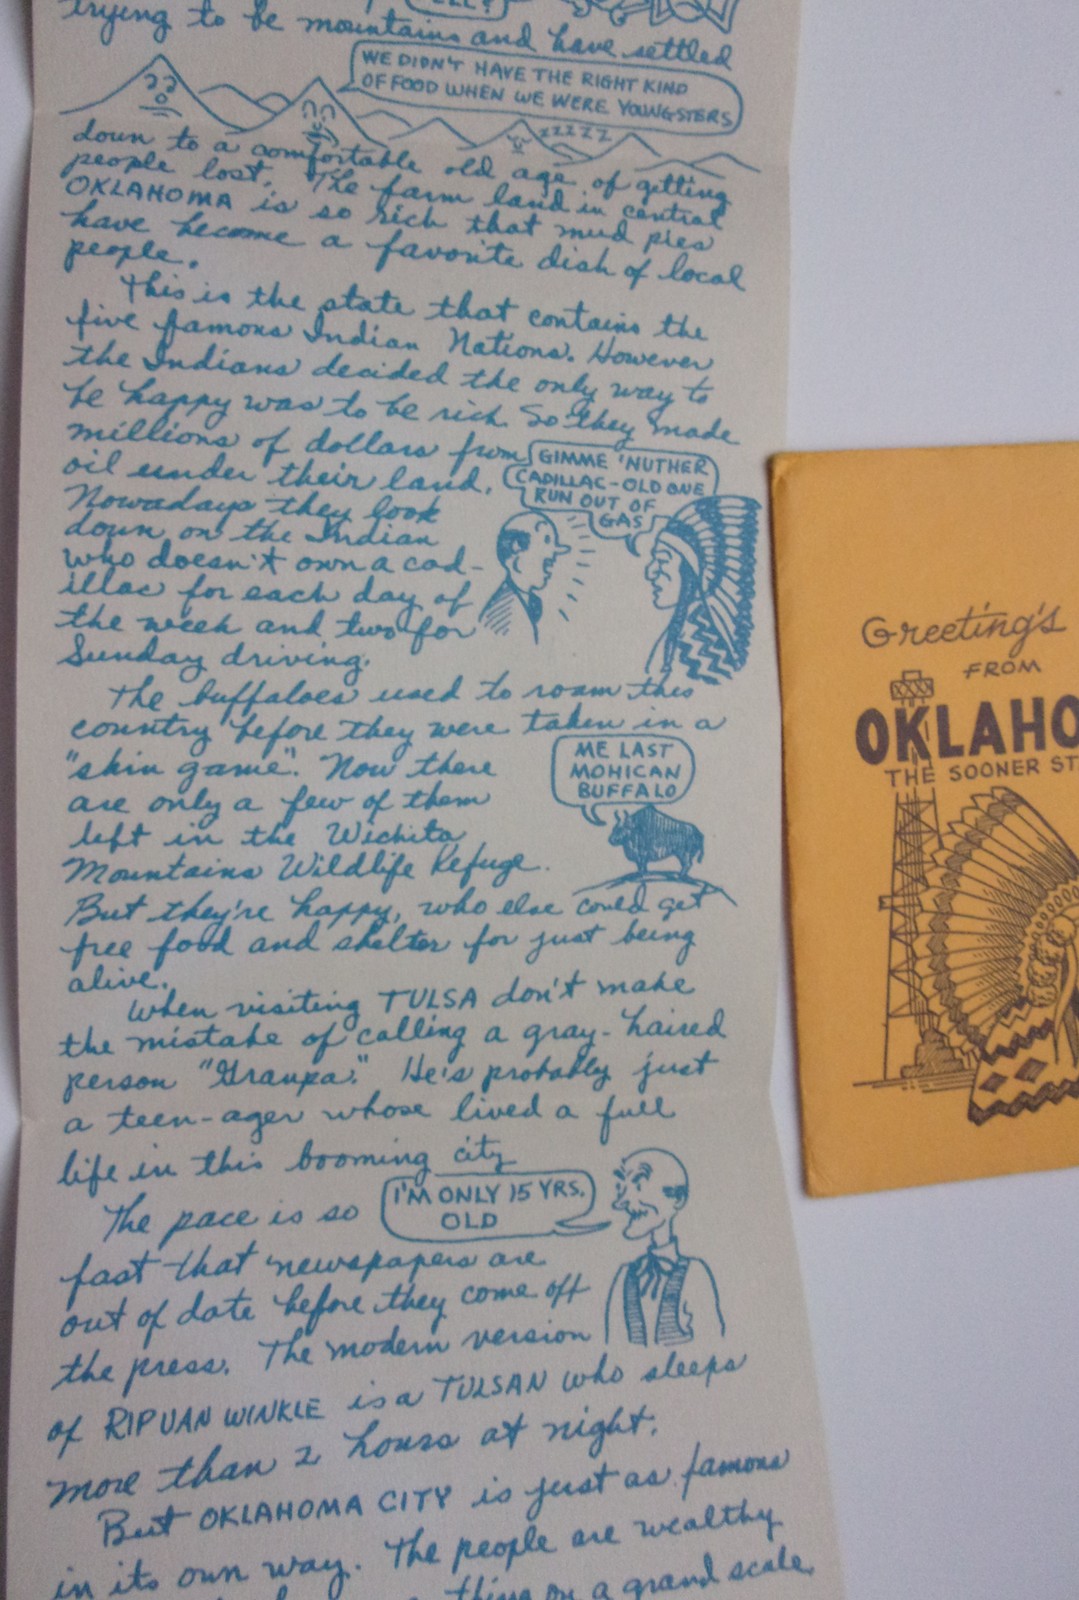 ELL?
trying to be mountains and have settled
WE DIDN'T HAVE THE RIGHT KIND
OF FOOD WHEN WE WERE YOUNGSTERS
ZZZZZ
down to a comfortable old age of getting
people lost. The farm land in central
OKLAHOMA is so rich that mud pies
have become a favorite dish of local
people.
This is the state that contains the
five famous Indian Nations. However
the Indians decided the only way to
be happy was to be rich. So they made
millions of dollars from
oil under their land.
GIMME 'NUTHER
CADILLAC-OLD ONE
RUN OUT OF
GAS
Nowadays they look
down on the Indian
who doesn't own a cad-
illac for each day of
the week and two for
Sunday driving.
The buffaloes used to roam this
country before they were taken in a
"skin game". Now there
are only a few of them
left in the Wichita
Mountains Wildlife Refuge.
ME LAST
MOHICAN
BUFFALO
But they're happy, who else could get
free food and shelter for just being
alive.
When visiting TULSA don't make
the mistake of calling a gray-haired
person "Granpa." He's probably just
a teen-ager whose lived a full
life in this booming city
I'M ONLY 15 YRS.
OLD
The pace is so
fast that newspapers are
out of date before they come off
the press. The modern version
of RIP VAN WINKLE is a TULSAN who sleeps
more than 2 hours at night.
But OKLAHOMA CITY is just as famous
in its own way. The people are wealthy
thing on a grand scale
Greeting's
FROM
OKLAHO
THE SOONER ST